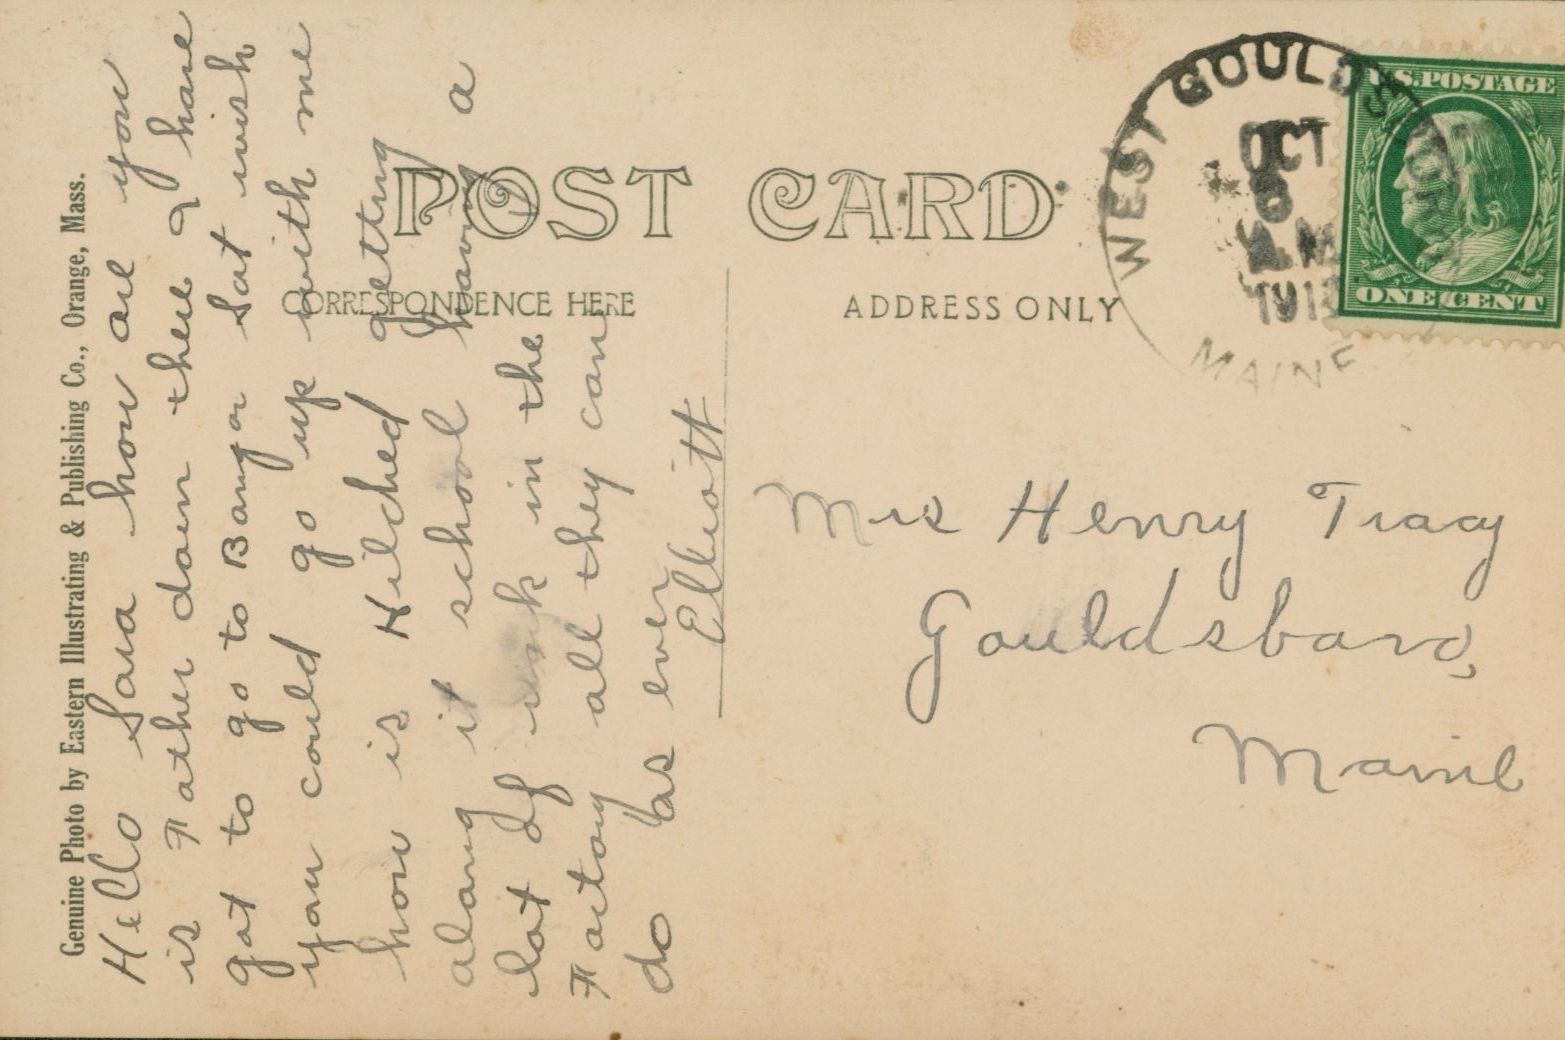 Genuine Photo by Eastern Illustrating & Publishing Co., Orange, Mass.
POST CARD
CORRESPONDENCE HERE
ADDRESS ONLY
Hello Sara how are you
is Father down there I have
got to go to Bangor Sat wish
you could go up with me
how is Hildred getting
along it school having a
lot of work in the
Factory all they can
do as ever
Elliott
WEST GOULDSBORO
OCT
A.M.
MAINE
U.S. POSTAGE
ONE CENT
Mrs Henry Tracy
Gouldsboro,
Maine